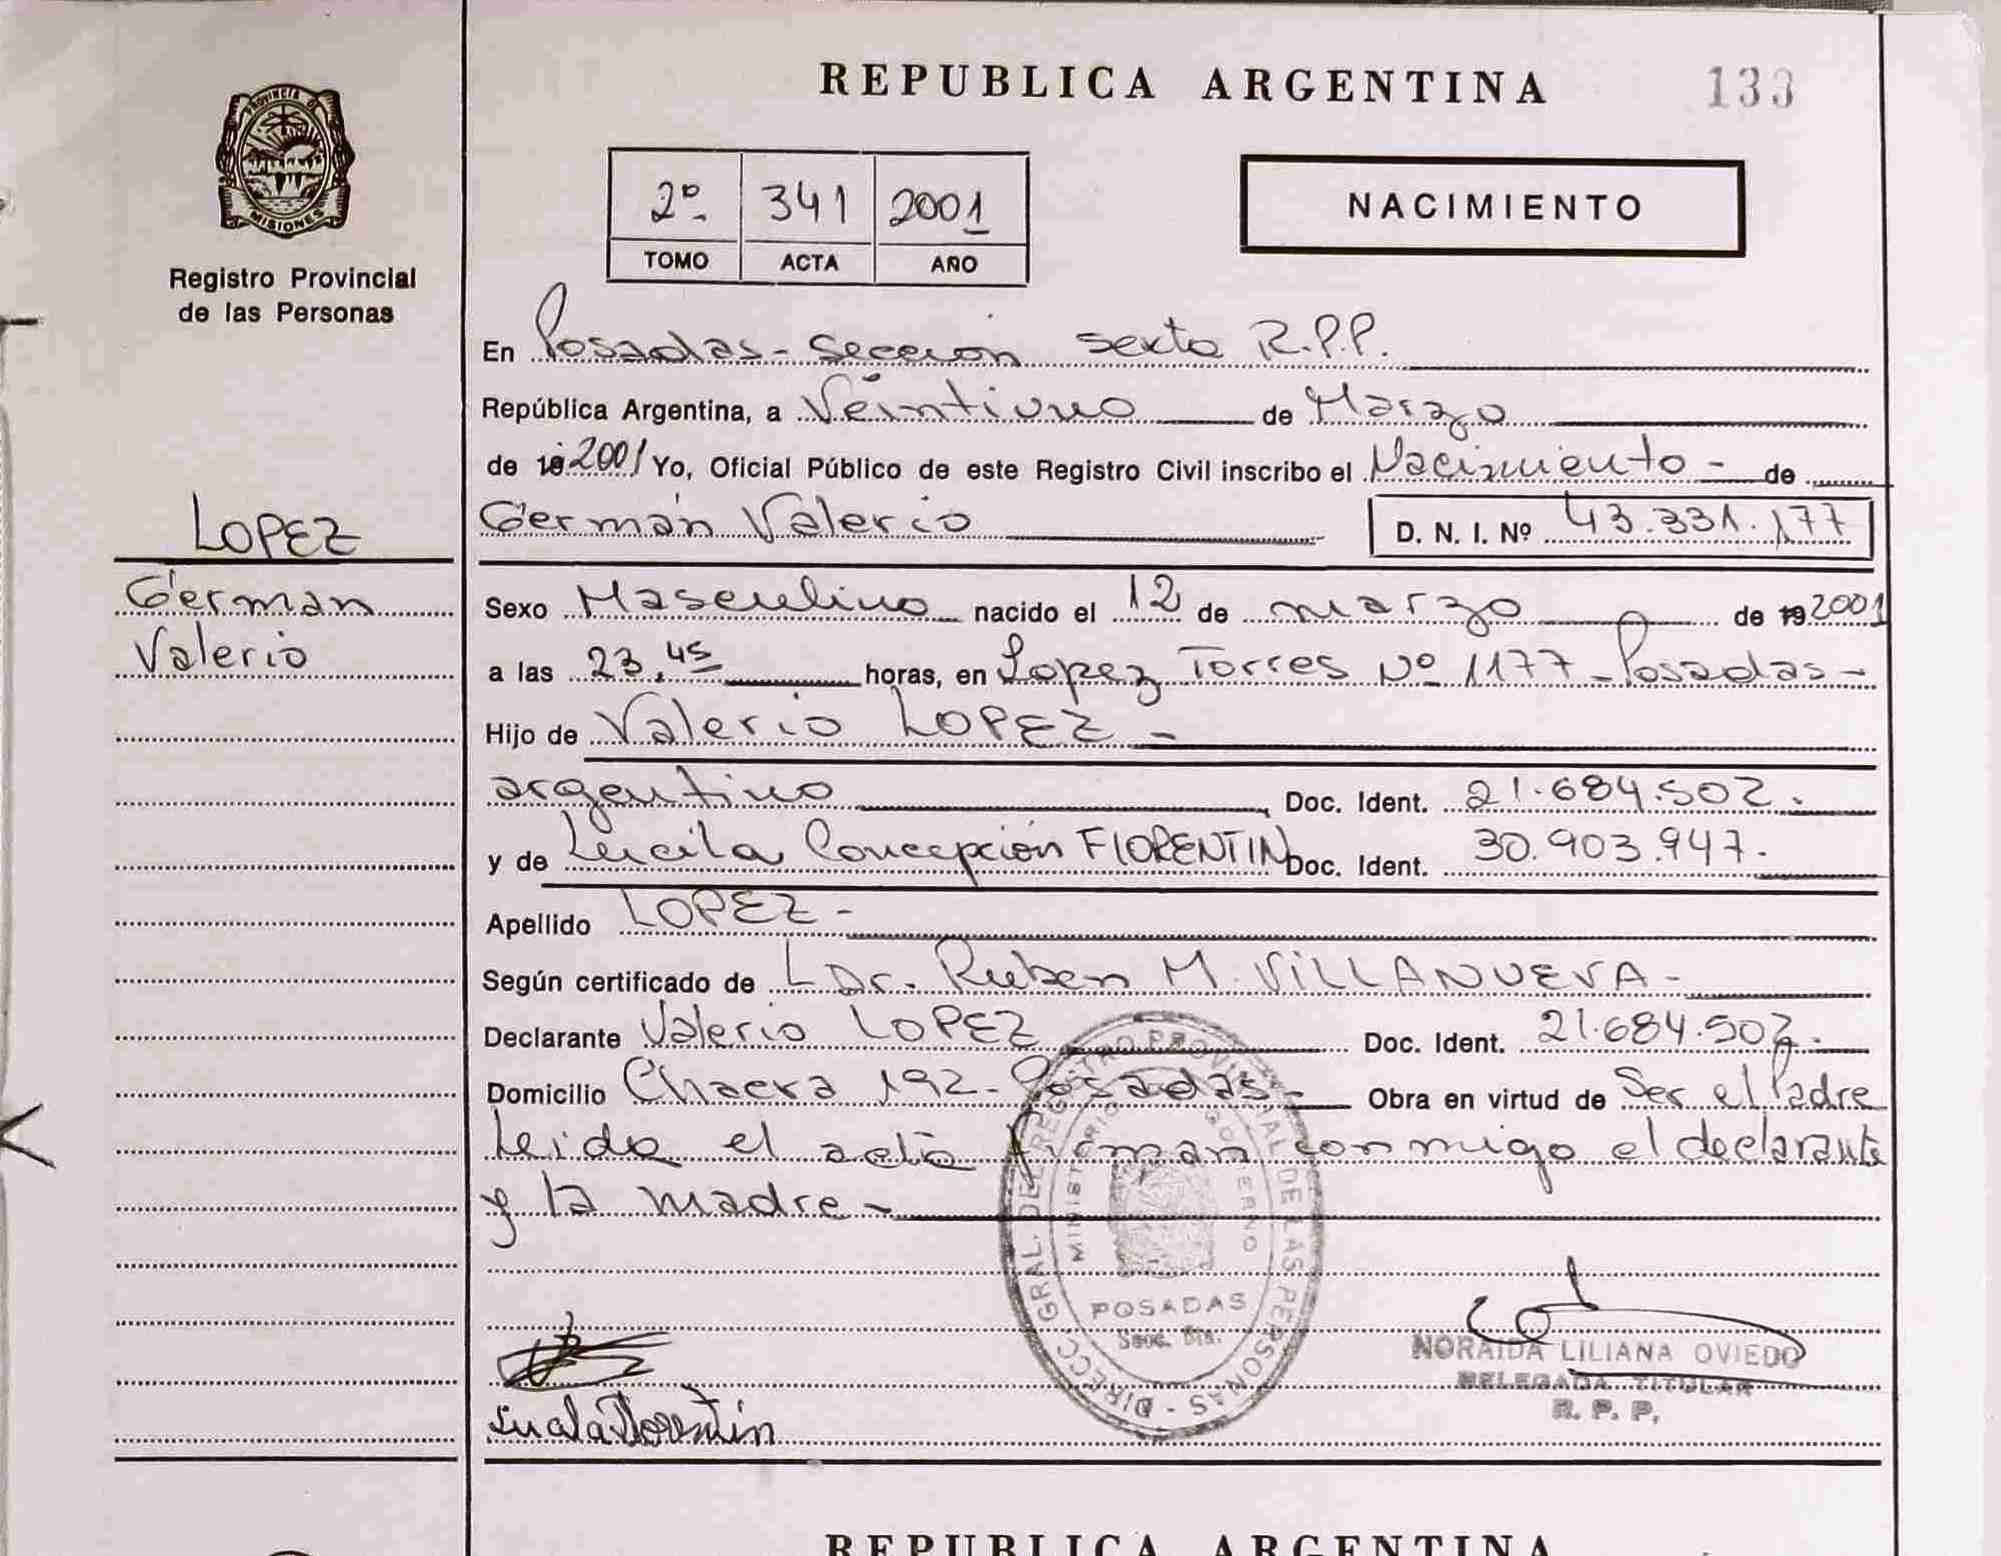 REPUBLICA ARGENTINA
133
PROVINCIA D
MISIONES
Registro Provincial
de las Personas
2º 341 2001
TOMO ACTA AÑO
NACIMIENTO
En Posadas - Sección sexta R.P.P.
República Argentina, a Veintiuno de Marzo
de 19 2001 Yo, Oficial Público de este Registro Civil inscribo el Nacimiento - de
Germán Valerio D. N. I. Nº 43.331.177
LOPEZ
Germán
Valerio
Sexo Masculino nacido el 12 de marzo de 19 2001
a las 23,45 horas, en Lopez Torres Nº 1177 - Posadas -
Hijo de Valerio LOPEZ -
argentino Doc. Ident. 21.684.502.
y de Lucila Concepción FLORENTIN Doc. Ident. 30.903.947.
Apellido LOPEZ -
Según certificado de Dr. Ruben M. VILLANUEVA -
Declarante Valerio LOPEZ Doc. Ident. 21.684.502.
Domicilio Chacra 192 - Posadas - Obra en virtud de Ser el Padre
Leida el acta firman conmigo el declarante
y la madre -
DIRECC. GRAL. DEL REGISTRO PROVINCIAL DE LAS PERSONAS -
MINISTERIO GOBIERNO
POSADAS
Secc. 6ta.
NORAIDA LILIANA OVIEDO
DELEGADA TITULAR
R. P. P.
Florentin
REPUBLICA ARGENTINA